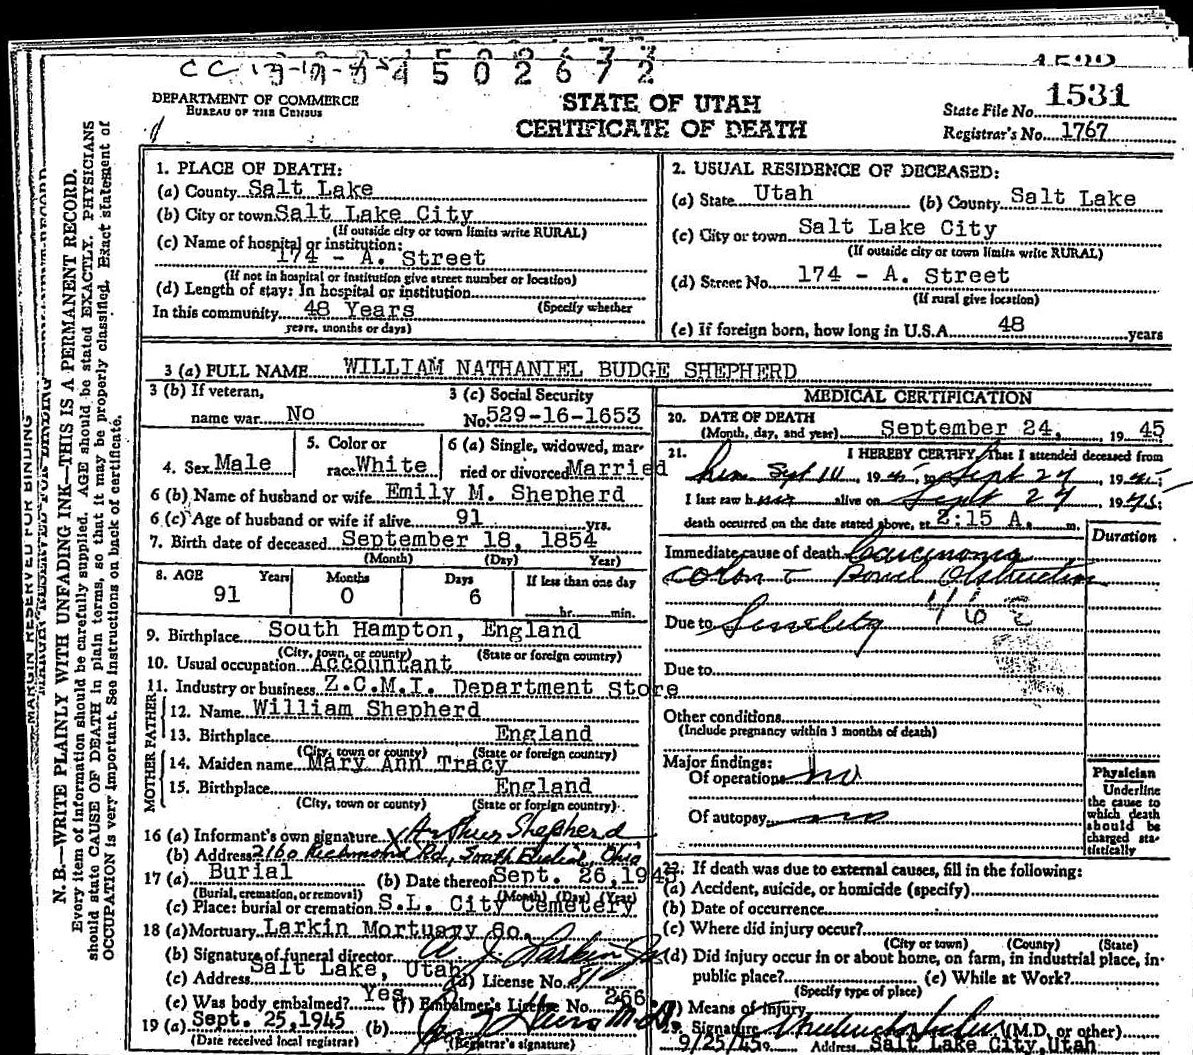 4502672
DEPARTMENT OF COMMERCE
BUREAU OF THE CENSUS
STATE OF UTAH
CERTIFICATE OF DEATH
State File No. 1531
Registrar's No. 1767
MARGIN RESERVED FOR BINDING
N. B.—WRITE PLAINLY WITH UNFADING INK—THIS IS A PERMANENT RECORD.
Every item of information should be carefully supplied. AGE should be stated EXACTLY. PHYSICIANS
should state CAUSE OF DEATH in plain terms, so that it may be properly classified. Exact statement of
OCCUPATION is very important. See instructions on back of certificate.
1. PLACE OF DEATH:
(a) County Salt Lake
(b) City or town Salt Lake City
(If outside city or town limits write RURAL)
(c) Name of hospital or institution:
174 - A. Street
(If not in hospital or institution give street number or location)
(d) Length of stay: In hospital or institution
(Specify whether
In this community 48 Years
years, months or days)
2. USUAL RESIDENCE OF DECEASED:
(a) State Utah (b) County Salt Lake
(c) City or town Salt Lake City
(If outside city or town limits write RURAL)
(d) Street No. 174 - A. Street
(If rural give location)
(e) If foreign born, how long in U.S.A. 48 years
3 (a) FULL NAME WILLIAM NATHANIEL BUDGE SHEPHERD
3 (b) If veteran,
name war No
3 (c) Social Security
No. 529-16-1653
4. Sex Male
5. Color or
race White
6 (a) Single, widowed, mar-
ried or divorced Married
6 (b) Name of husband or wife Emily M. Shepherd
6 (c) Age of husband or wife if alive 91 yrs.
7. Birth date of deceased September 18, 1854
(Month) (Day) Year)
8. AGE Years Months Days If less than one day
91 0 6 hr. min.
9. Birthplace South Hampton, England
(City, town, or county) (State or foreign country)
10. Usual occupation Accountant
11. Industry or business Z.C.M.I. Department Store
FATHER
12. Name William Shepherd
13. Birthplace England
(City, town or county) (State or foreign country)
MOTHER
14. Maiden name Mary Ann Tracy
15. Birthplace England
(City, town or county) (State or foreign country)
16 (a) Informant's own signature X Arthur Shepherd
(b) Address 2160 Richmond Rd, South Euclid, Ohio
17 (a) Burial (b) Date thereof Sept. 26, 1945
(Burial, cremation, or removal) (Month) (Day) (Year)
(c) Place: burial or cremation S.L. City Cemetery
18 (a) Mortuary Larkin Mortuary Co.
(b) Signature of funeral director A. J. Larkin
(c) Address Salt Lake, Utah (d) License No.
(e) Was body embalmed? Yes (f) Embalmer's License No. 266
19 (a) Sept. 25, 1945 (b)
(Date received local registrar) (Registrar's signature)
MEDICAL CERTIFICATION
20. DATE OF DEATH
(Month, day, and year) September 24, 19 45
21. I HEREBY CERTIFY, That I attended deceased from
him Sept 1945, to Sept 24, 1945;
I last saw him alive on Sept 24 1945
death occurred on the date stated above, at 2:15 A. m.
Duration
Immediate cause of death Carcinoma
colon c Bowel Obstruction
Due to Senility 46 E
Due to
Other conditions
(Include pregnancy within 3 months of death)
Major findings:
Of operations no
Of autopsy no
Physician
Underline
the cause to
which death
should be
charged sta-
tistically
22. If death was due to external causes, fill in the following:
(a) Accident, suicide, or homicide (specify)
(b) Date of occurrence
(c) Where did injury occur?
(City or town) (County) (State)
(d) Did injury occur in or about home, on farm, in industrial place, in
public place? (e) While at Work?
(Specify type of place)
Means of injury
Signature (M.D. or other)
9/25/45 Address Salt Lake City, Utah